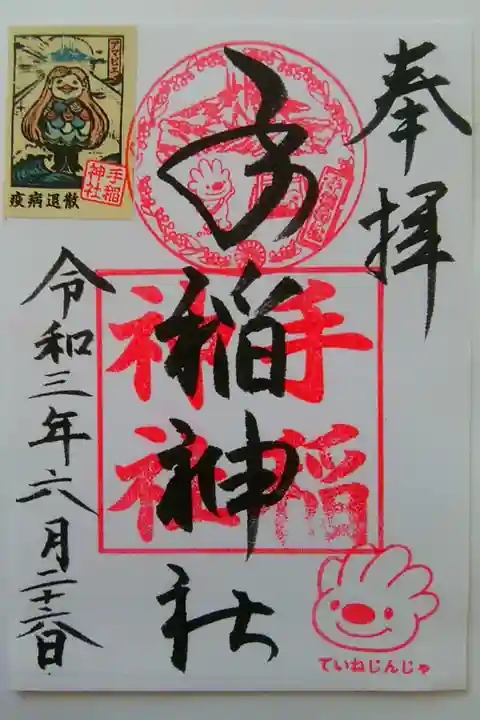 奉拝
手稲神社
手稲
神社
令和三年六月二十六日
アマビエ
手稲
神社
疫病退散
ていねじんじゃ